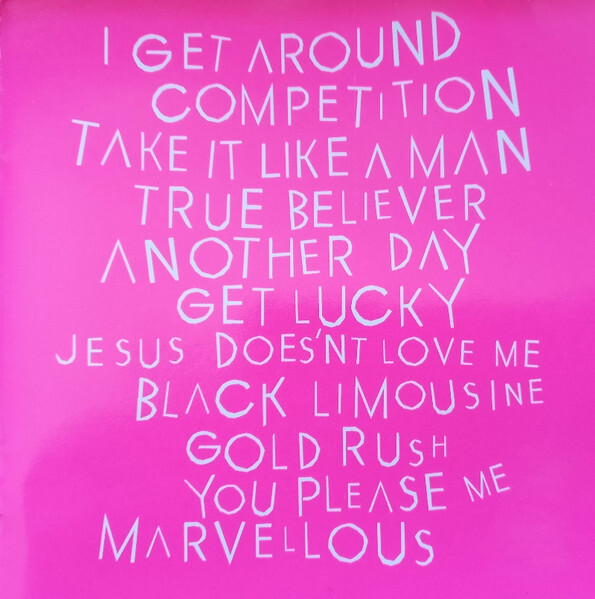 I GET AROUND
COMPETITION
TAKE IT LIKE A MAN
TRUE BELIEVER
ANOTHER DAY
GET LUCKY
JESUS DOES'NT LOVE ME
BLACK LIMOUSINE
GOLD RUSH
YOU PLEASE ME
MARVELLOUS